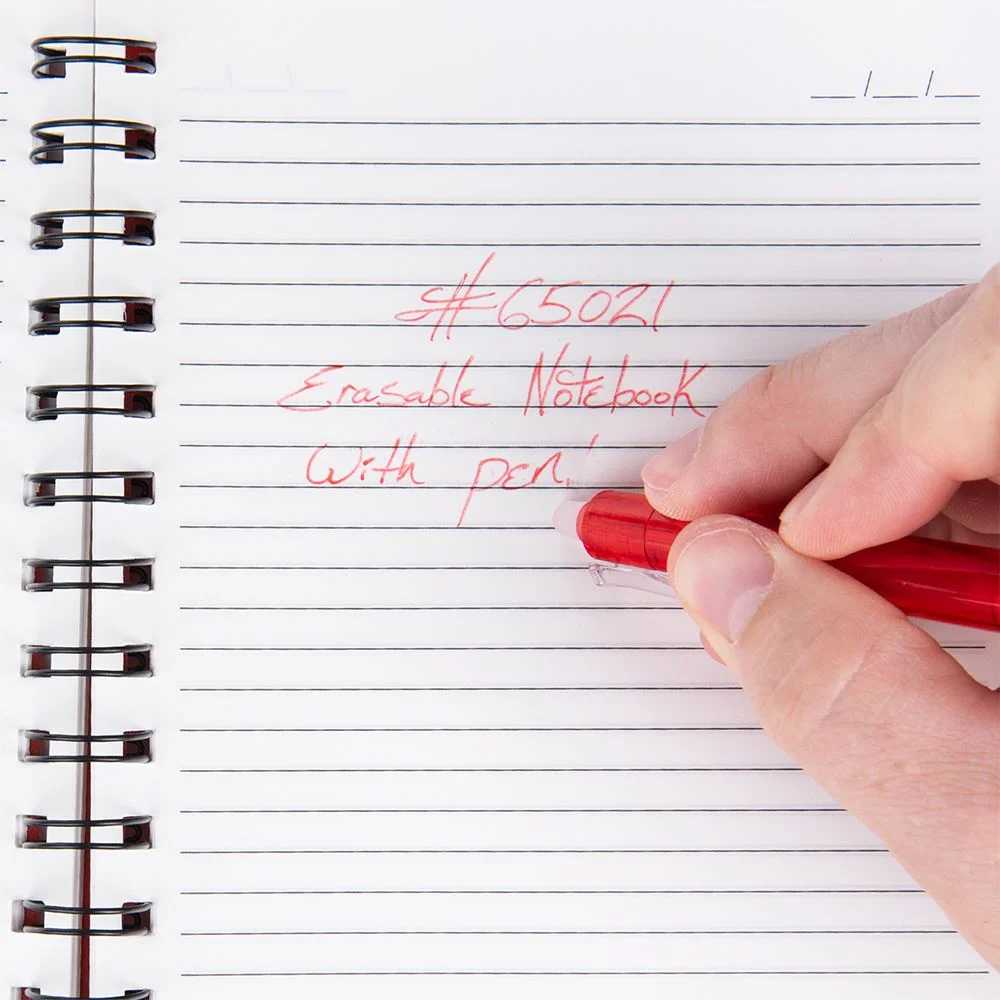 #65021
Erasable Notebook
With pen!